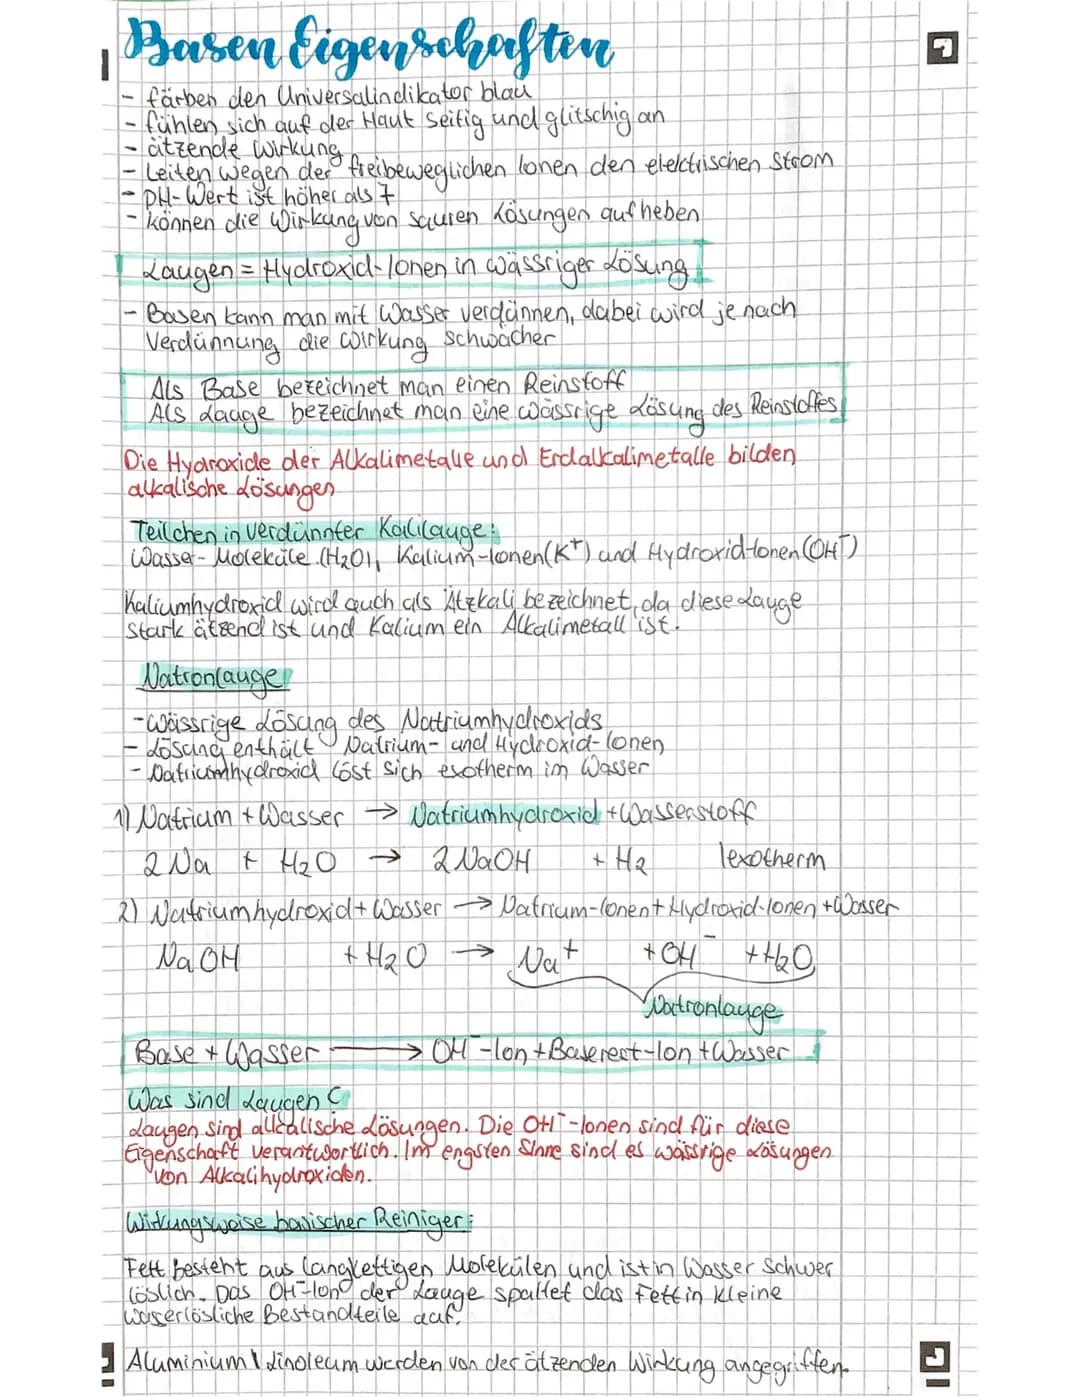 Basen Eigenschaften
- färben den Universalindikator blau
- fühlen sich auf der Haut seifig und glitschig an
- ätzende Wirkung
- Leiten wegen der freibeweglichen Ionen den elektrischen Strom
- pH-Wert ist höher als 7
- können die Wirkung von sauren Lösungen aufheben
Laugen = Hydroxid-Ionen in wässriger Lösung
- Basen kann man mit Wasser verdünnen, dabei wird je nach
Verdünnung die Wirkung schwächer
Als Base bezeichnet man einen Reinstoff
Als Lauge bezeichnet man eine wässrige Lösung des Reinstoffes
Die Hydroxide der Alkalimetalle und Erdalkalimetalle bilden
alkalische Lösungen
Teilchen in verdünnter Kalilauge:
Wasser-Moleküle (H2O), Kalium-Ionen (K+) und Hydroxid-Ionen (OH⁻)
Kaliumhydroxid wird auch als Ätzkali bezeichnet, da diese Lauge
stark ätzend ist und Kalium ein Alkalimetall ist.
Natronlauge
- wässrige Lösung des Natriumhydroxids
- Lösung enthält Natrium- und Hydroxid-Ionen
- Natriumhydroxid löst sich exotherm im Wasser
1) Natrium + Wasser → Natriumhydroxid + Wasserstoff
2 Na + H2O → 2 NaOH + H2 lexotherm
2) Natriumhydroxid + Wasser → Natrium-Ionen + Hydroxid-Ionen + Wasser
NaOH + H2O → Na+ + OH⁻ + H2O
Natronlauge
Base + Wasser → OH⁻-Ion + Baserest-Ion + Wasser
Was sind Laugen ?
Laugen sind alkalische Lösungen. Die OH⁻-Ionen sind für diese
Eigenschaft verantwortlich. Im engsten Sinne sind es wässrige Lösungen
von Alkalihydroxiden.
Wirkungsweise basischer Reiniger:
Fett besteht aus langkettigen Molekülen und ist in Wasser schwer
löslich. Das OH⁻-Ion der Lauge spaltet das Fett in kleine
wasserlösliche Bestandteile auf.
Aluminium \ Linoleum werden von der ätzenden Wirkung angegriffen.